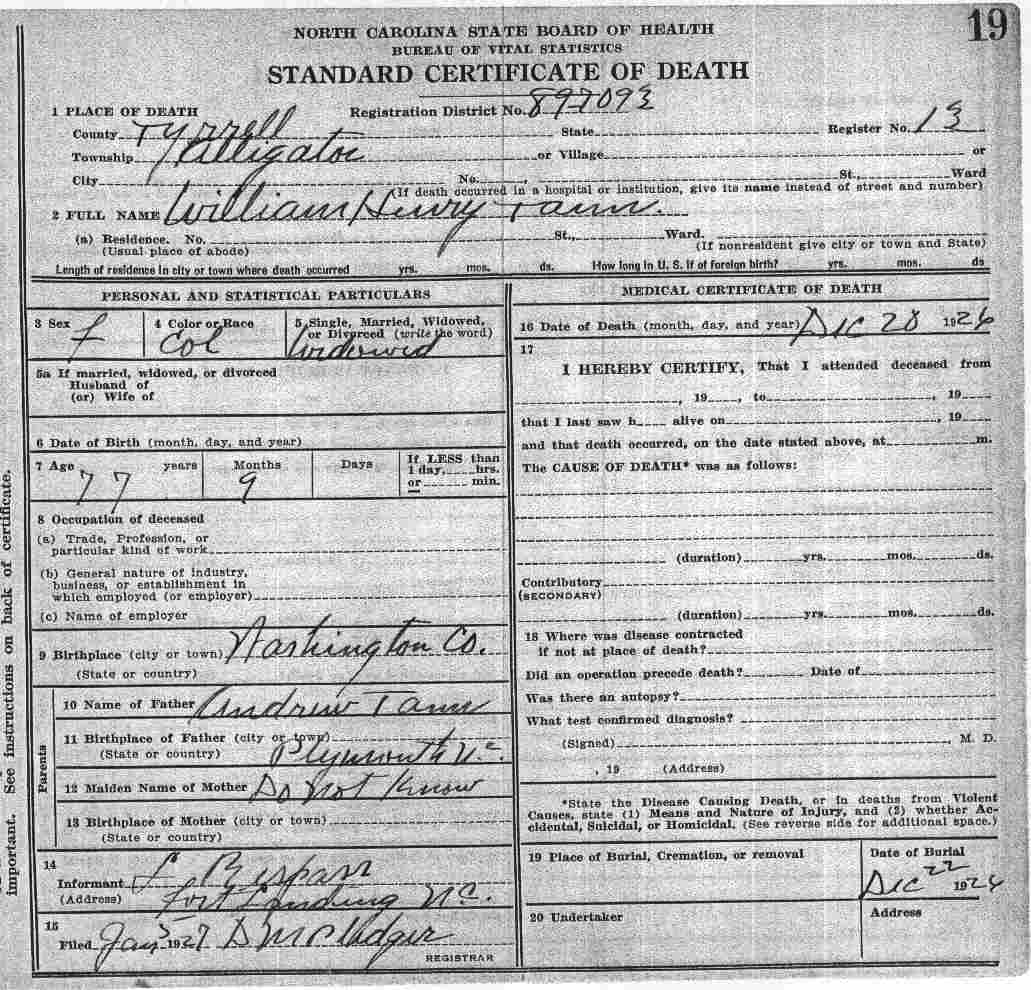 19
NORTH CAROLINA STATE BOARD OF HEALTH
BUREAU OF VITAL STATISTICS
STANDARD CERTIFICATE OF DEATH
1 PLACE OF DEATH Registration District No. 897093
County Tyrrell State Register No. 13
Township Alligator or Village or
City No. , St., Ward
(If death occurred in a hospital or institution, give its name instead of street and number)
2 FULL NAME William Henry Tann.
(a) Residence. No. St., Ward.
(Usual place of abode) (If nonresident give city or town and State)
Length of residence in city or town where death occurred yrs. mos. ds. How long in U. S. if of foreign birth? yrs. mos. ds
PERSONAL AND STATISTICAL PARTICULARS
3 Sex 4 Color or Race 5 Single, Married, Widowed,
or Divorced (write the word)
f Col Widowed
5a If married, widowed, or divorced
Husband of
(or) Wife of
6 Date of Birth (month, day, and year)
7 Age years Months Days If LESS than
1 day, hrs.
or min.
77 9
8 Occupation of deceased
(a) Trade, Profession, or
particular kind of work
(b) General nature of industry,
business, or establishment in
which employed (or employer)
(c) Name of employer
9 Birthplace (city or town) Washington Co.
(State or country)
Parents
10 Name of Father Andrew Tann
11 Birthplace of Father (city or town)
(State or country) Plymouth N.C.
12 Maiden Name of Mother Do not Know
13 Birthplace of Mother (city or town)
(State or country)
14
Informant
(Address) Fort Landing N.C.
15
Filed Jan 1927
REGISTRAR
MEDICAL CERTIFICATE OF DEATH
16 Date of Death (month, day, and year) Dec 20 1926
17
I HEREBY CERTIFY, That I attended deceased from
, 19 , to , 19
that I last saw h alive on , 19
and that death occurred, on the date stated above, at m.
The CAUSE OF DEATH* was as follows:
(duration) yrs. mos. ds.
Contributory
(SECONDARY)
(duration) yrs. mos. ds.
18 Where was disease contracted
if not at place of death?
Did an operation precede death? Date of
Was there an autopsy?
What test confirmed diagnosis?
(Signed) , M. D.
, 19 (Address)
*State the Disease Causing Death, or in deaths from Violent
Causes, state (1) Means and Nature of Injury, and (2) whether Ac-
cidental, Suicidal, or Homicidal. (See reverse side for additional space.)
19 Place of Burial, Cremation, or removal Date of Burial
Dec 22 1926
20 Undertaker Address
important. See instructions on back of certificate.